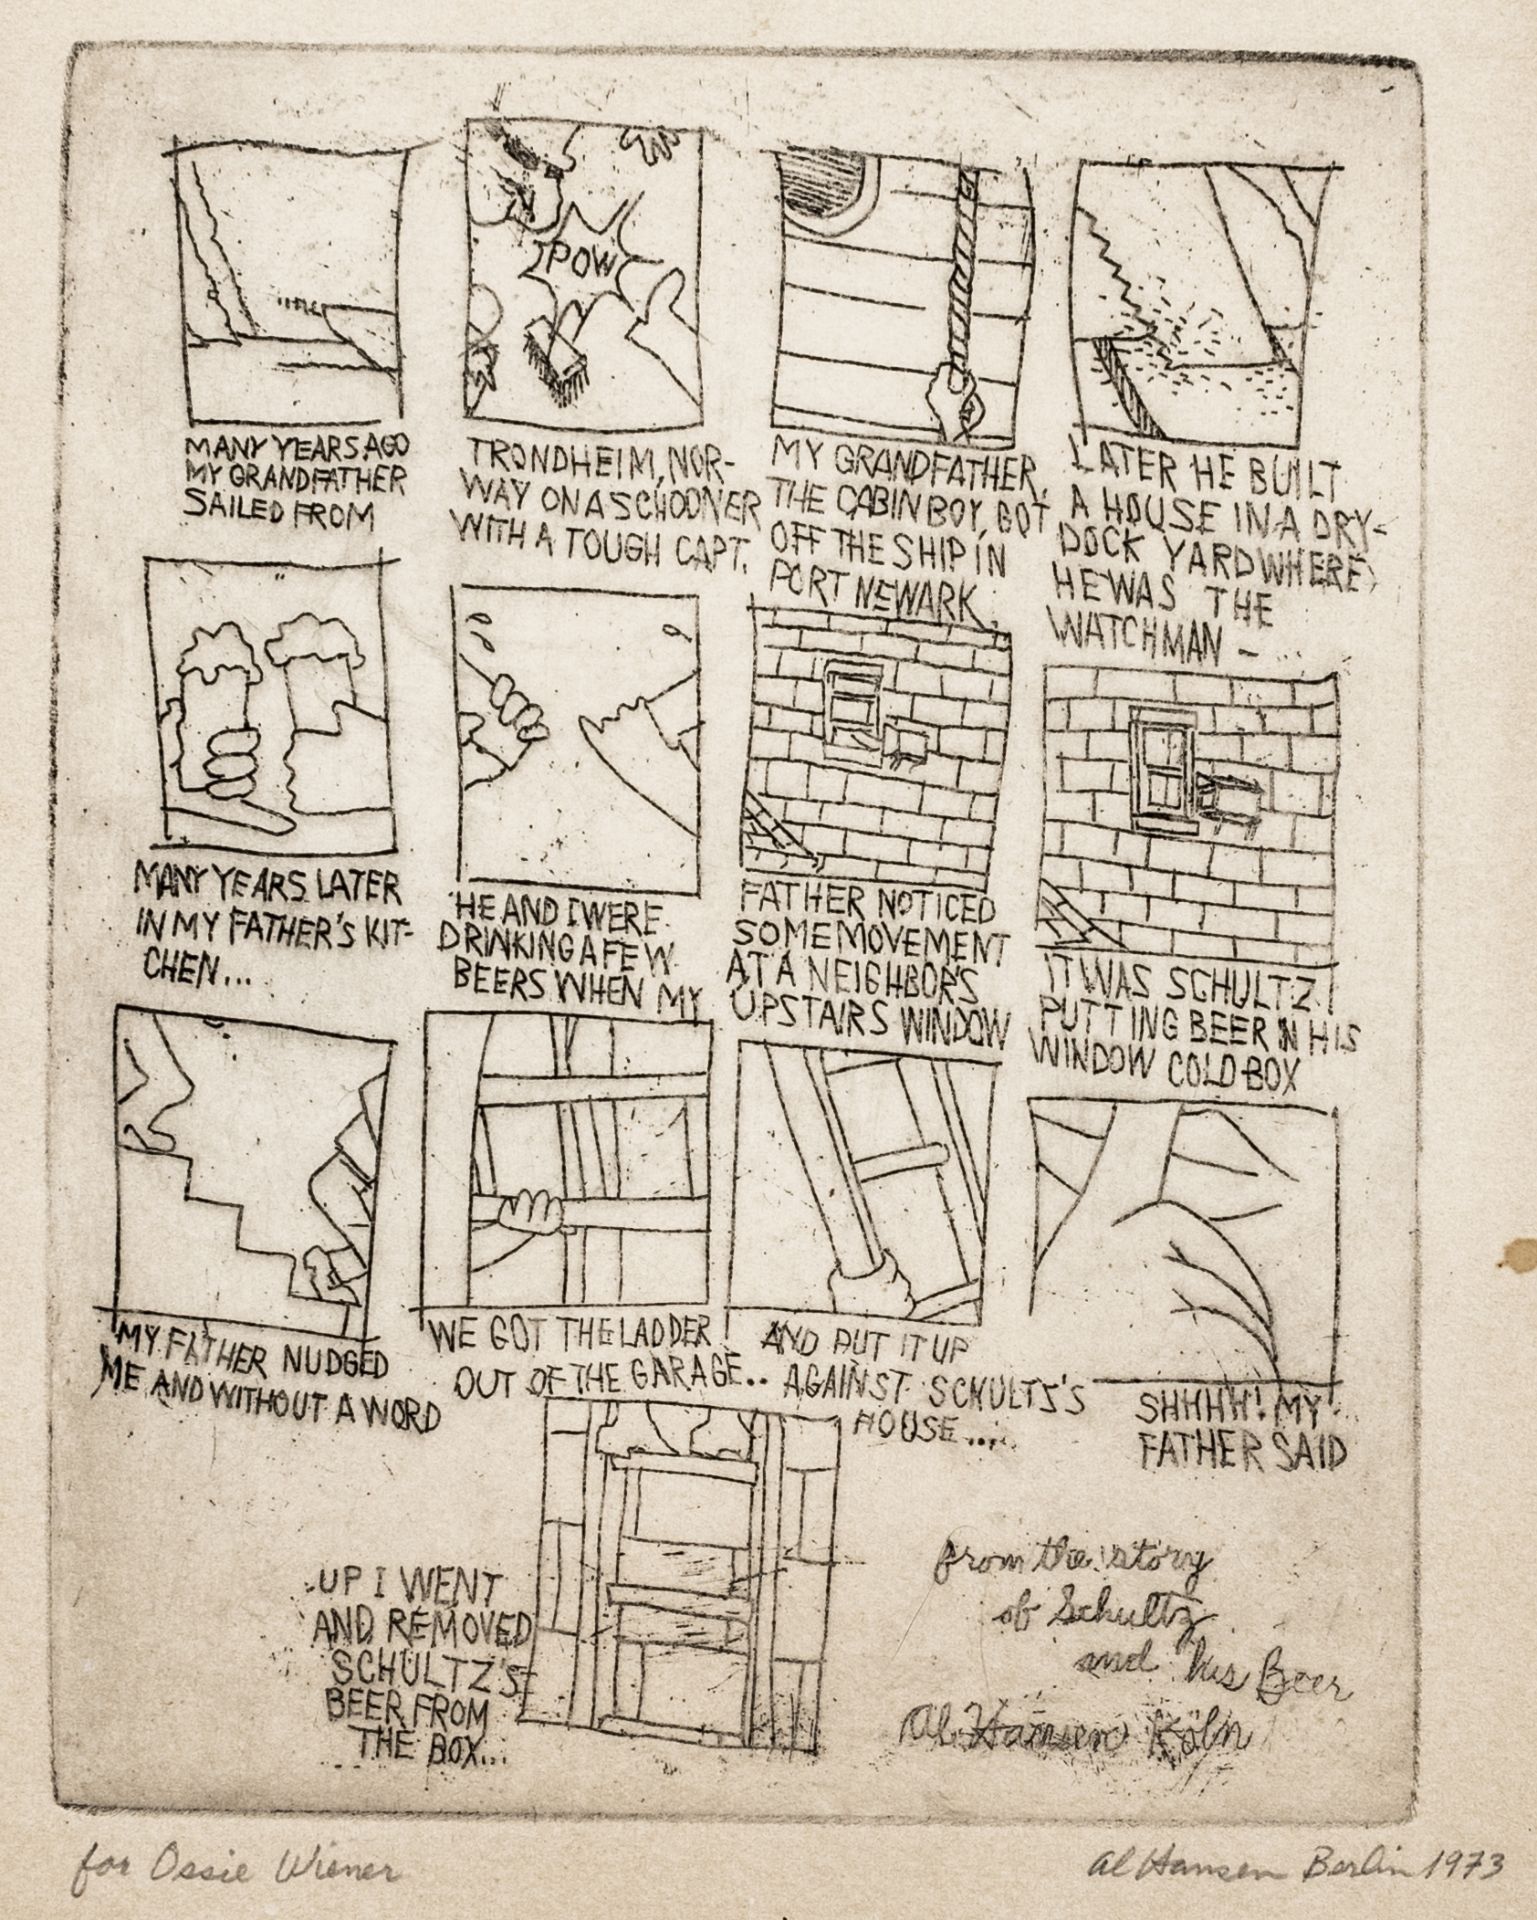 POW
MANY YEARS AGO
MY GRANDFATHER
SAILED FROM
TRONDHEIM, NOR-
WAY ON A SCHOONER
WITH A TOUGH CAPT.
MY GRANDFATHER,
THE CABIN BOY, GOT
OFF THE SHIP IN
PORT NEWARK.
LATER HE BUILT
A HOUSE IN A DRY-
DOCK YARD WHERE
HE WAS THE
WATCHMAN –
MANY YEARS LATER
IN MY FATHER'S KIT-
CHEN...
HE AND I WERE
DRINKING A FEW
BEERS WHEN MY
FATHER NOTICED
SOME MOVEMENT
AT A NEIGHBOR'S
UPSTAIRS WINDOW
IT WAS SCHULTZ
PUTTING BEER IN HIS
WINDOW COLD BOX
MY FATHER NUDGED
ME AND WITHOUT A WORD
WE GOT THE LADDER
OUT OF THE GARAGE..
AND PUT IT UP
AGAINST SCHULTZ'S
HOUSE....
SHHHH! MY
FATHER SAID
UP I WENT
AND REMOVED
SCHULTZ'S
BEER FROM
THE BOX...
from the story
of Schultz
and his Beer
Al Hansen Köln
for Ossie Wiener
Al Hansen Berlin 1973